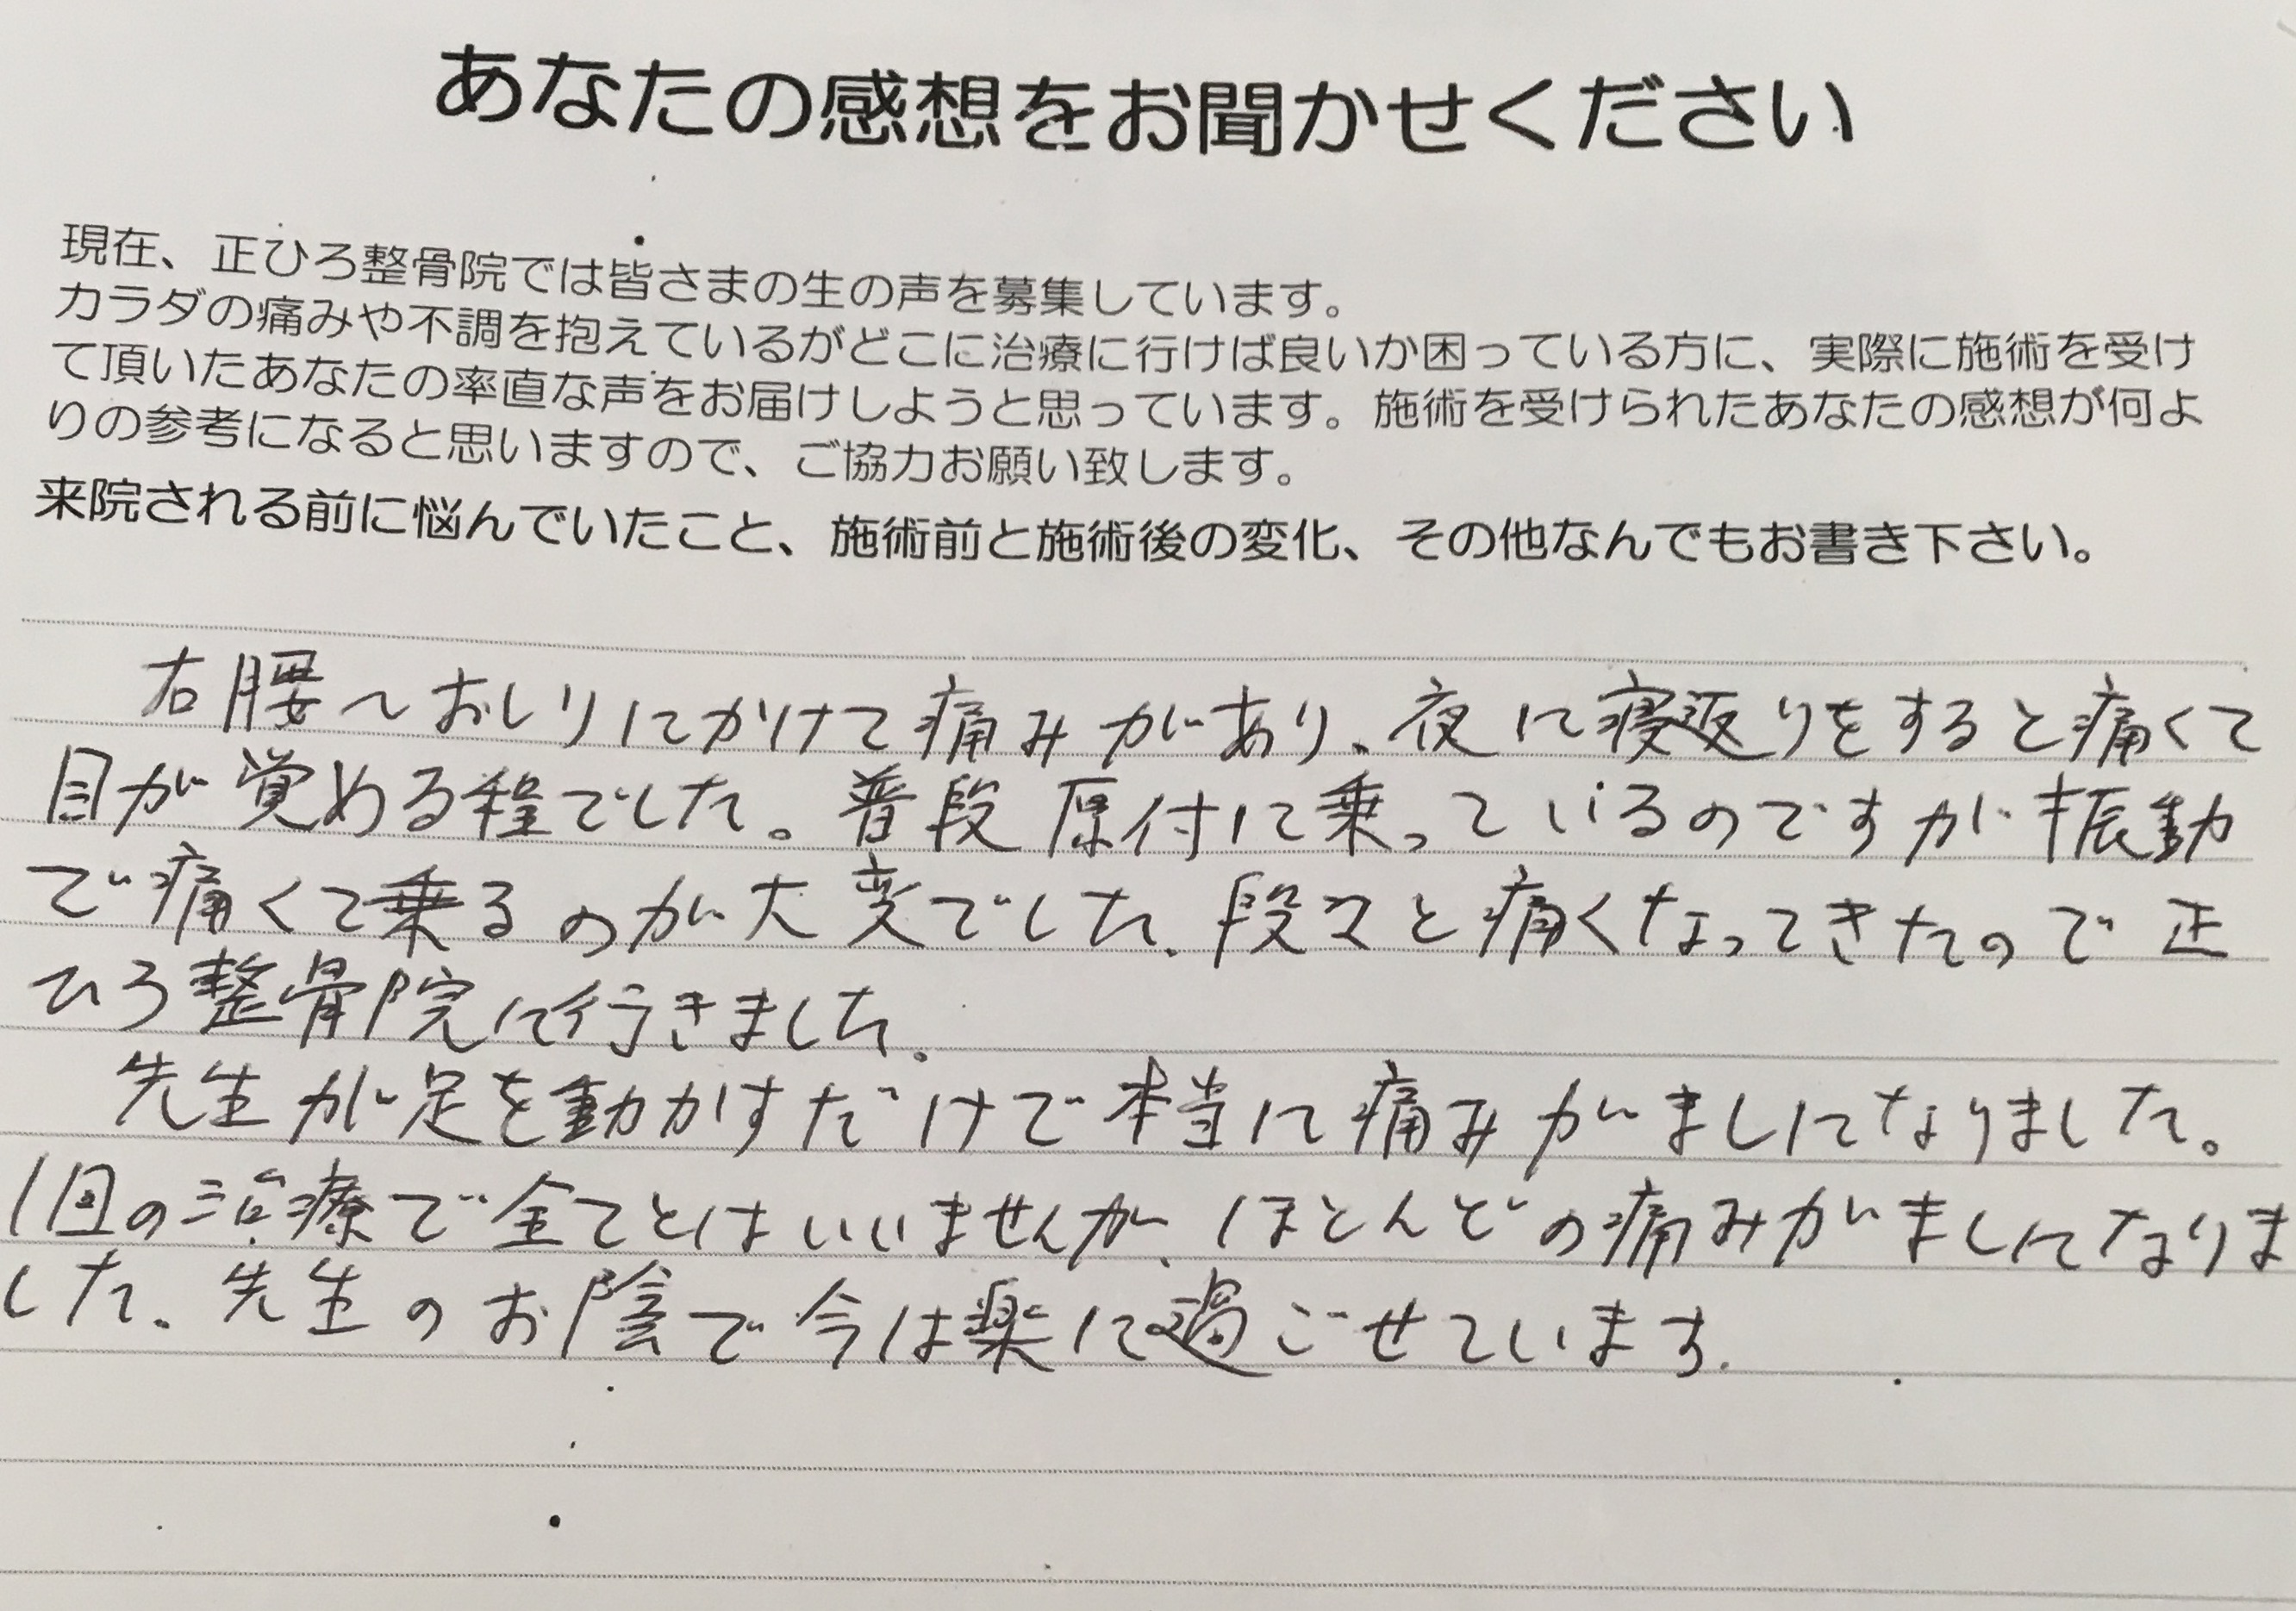 あなたの感想をお聞かせください
現在、正ひろ整骨院では皆さまの生の声を募集しています。
カラダの痛みや不調を抱えているがどこに治療に行けば良いか困っている方に、実際に施術を受け
て頂いたあなたの率直な声をお届けしようと思っています。施術を受けられたあなたの感想が何よ
りの参考になると思いますので、ご協力お願い致します。
来院される前に悩んでいたこと、施術前と施術後の変化、その他なんでもお書き下さい。
右腰〜おしりにかけて痛みがあり、夜に寝返りをすると痛くて
目が覚める程でした。普段原付に乗っているのですが振動
で痛くて乗るのが大変でした。段々と痛くなってきたので正
ひろ整骨院に行きました。
先生が足を動かすだけで本当に痛みがましになりました。
1回の治療で全てとはいいませんが、ほとんどの痛みがましになりま
した。先生のお陰で今は楽に過ごせています。